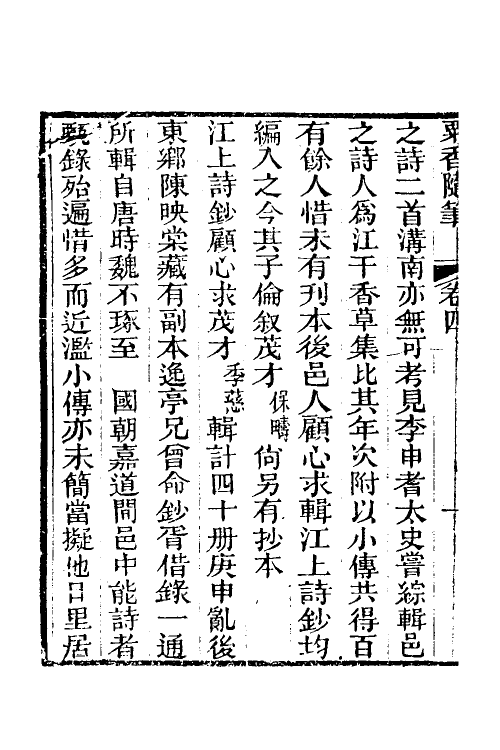 粟香隨筆 卷四 一
之詩二首溝南亦無可考見李申耆太史嘗綜輯邑
之詩人爲江干香草集比其年次附以小傳共得百
有餘人惜未有刊本後邑人顧心求輯江上詩鈔均
編入之今其子倫敘茂才保疇尙另有抄本
江上詩鈔顧心求茂才季慈輯計四十册庚申亂後
東鄉陳映棠藏有副本逸亭兄曾命鈔胥借錄一通
所輯自唐時魏不琢至　國朝嘉道間邑中能詩者
甄錄殆遍惜多而近濫小傳亦未簡當擬他日里居